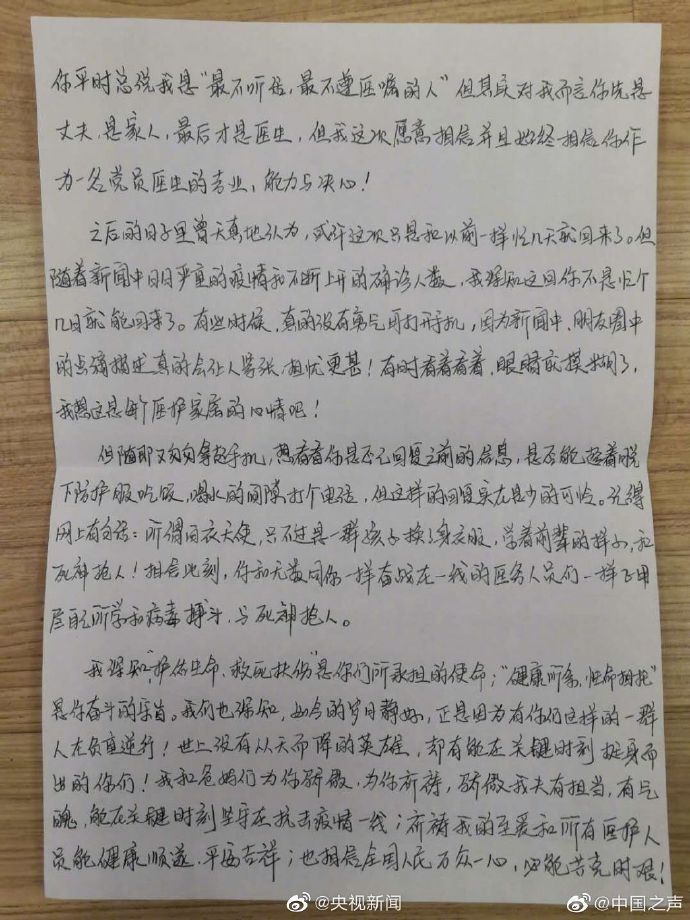 你平时总说我是“最不听话，最不遵医嘱的人”但其实对我而言你先是
丈夫，是家人，最后才是医生，但我这次愿意相信并且始终相信你作
为一名党员医生的专业，能力与决心！
之后的日子里曾天真地认为，或许这次只是和以前一样忙几天就回来了。但
随着新闻中日日严重的疫情和不断上升的确诊人数，我深知这回你不是忙个
几日就能回来了。有些时候，真的没有勇气再打开手机，因为新闻中、朋友圈中
的点滴描述真的会让人紧张、担忧更甚！有时看着看着，眼睛就模糊了，
我想这是每个医护家属的心情吧！
但随即又匆匆拿起手机，想看看你是否已回复之前的信息，是否能趁着脱
下防护服吃饭，喝水的间隙打个电话，但这样的回复实在是少的可怜。记得
网上有句话：所谓白衣天使，只不过是一群孩子换了身衣服，学着前辈的样子，和
死神抢人！相信此刻，你和无数同你一样奋战在一线的医务人员们一样在用
尽自己所学和病毒搏斗，与死神抢人。
我深知“护佑生命、救死扶伤”是你们所承担的使命；“健康所系，性命相托”
是你奋斗的宗旨。我们也深知，如今的岁月静好，正是因为有你们这样的一群
人在负重逆行！世上没有从天而降的英雄，却有能在关键时刻挺身而
出的你们！我和爸妈们为你骄傲，为你祈祷，骄傲我夫有担当，有气
魄，能在关键时刻坚守在抗击疫情一线；祈祷我的至爱和所有医护人
员能健康顺遂、平安吉祥；也相信全国人民万众一心，必能共克时艰！
@央视新闻
@中国之声